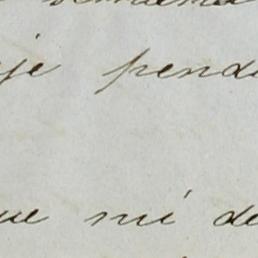 je pend
ue mi de